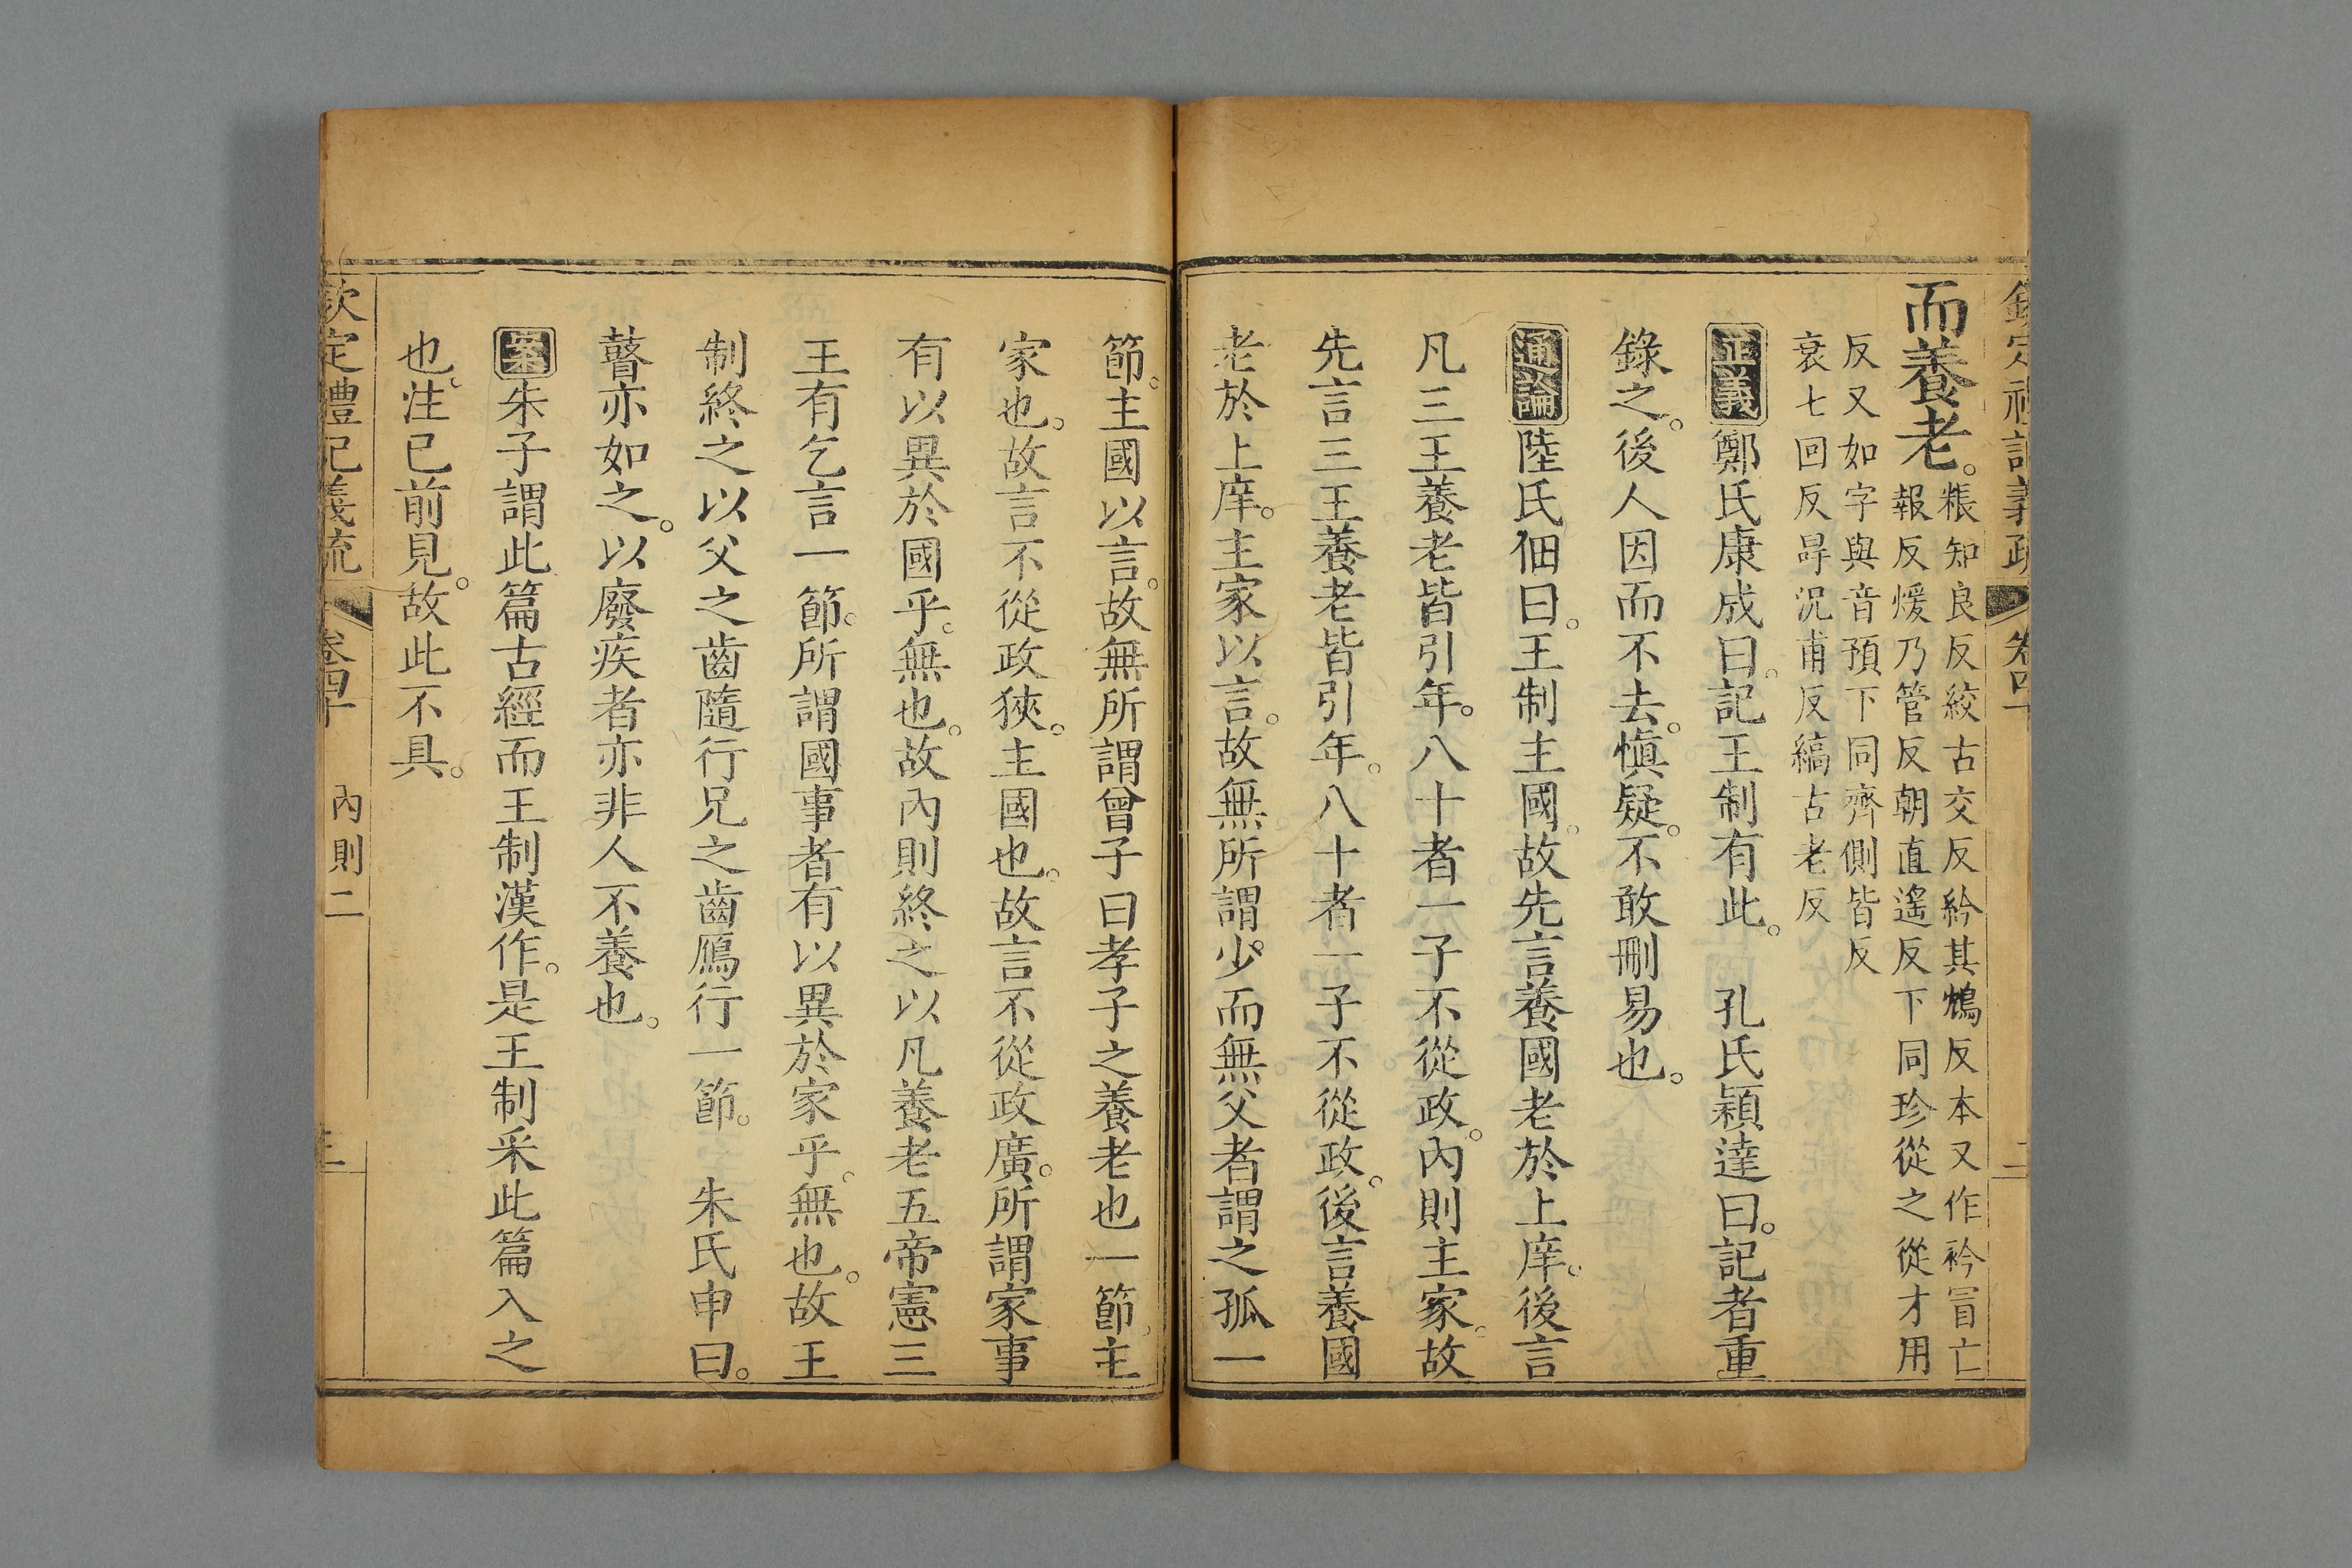 欽定禮記義疏 卷四十 二
而養老。粻知良反絞古交反紟其鴆反本又作衿冒亡
報反煖乃管反朝直遙反下同珍從之從才用
反又如字與音預下同齊側皆反
衰七回反冔況甫反縞古老反
正義鄭氏康成曰。記王制有此。 孔氏穎達曰。記者重
錄之。後人因而不去。慎疑。不敢刪易也。
通論陸氏佃曰。王制主國。故先言養國老於上庠。後言
凡三王養老皆引年。八十者一子不從政。內則主家。故
先言三王養老皆引年。八十者一子不從政。後言養國
老於上庠。主家以言。故無所謂少而無父者謂之孤一
節。主國以言。故無所謂曾子曰孝子之養老也一節。主
家也。故言不從政狹。主國也。故言不從政廣。所謂家事
有以異於國乎。無也。故內則終之以凡養老五帝憲三
王有乞言一節。所謂國事者有以異於家乎。無也。故王
制終之以父之齒隨行兄之齒鴈行一節。 朱氏申曰。
瞽亦如之。以廢疾者亦非人不養也。
案朱子謂此篇古經而王制漢作。是王制采此篇入之
也。注已前見。故此不具。
欽定禮記義疏 卷四十 內則二 三